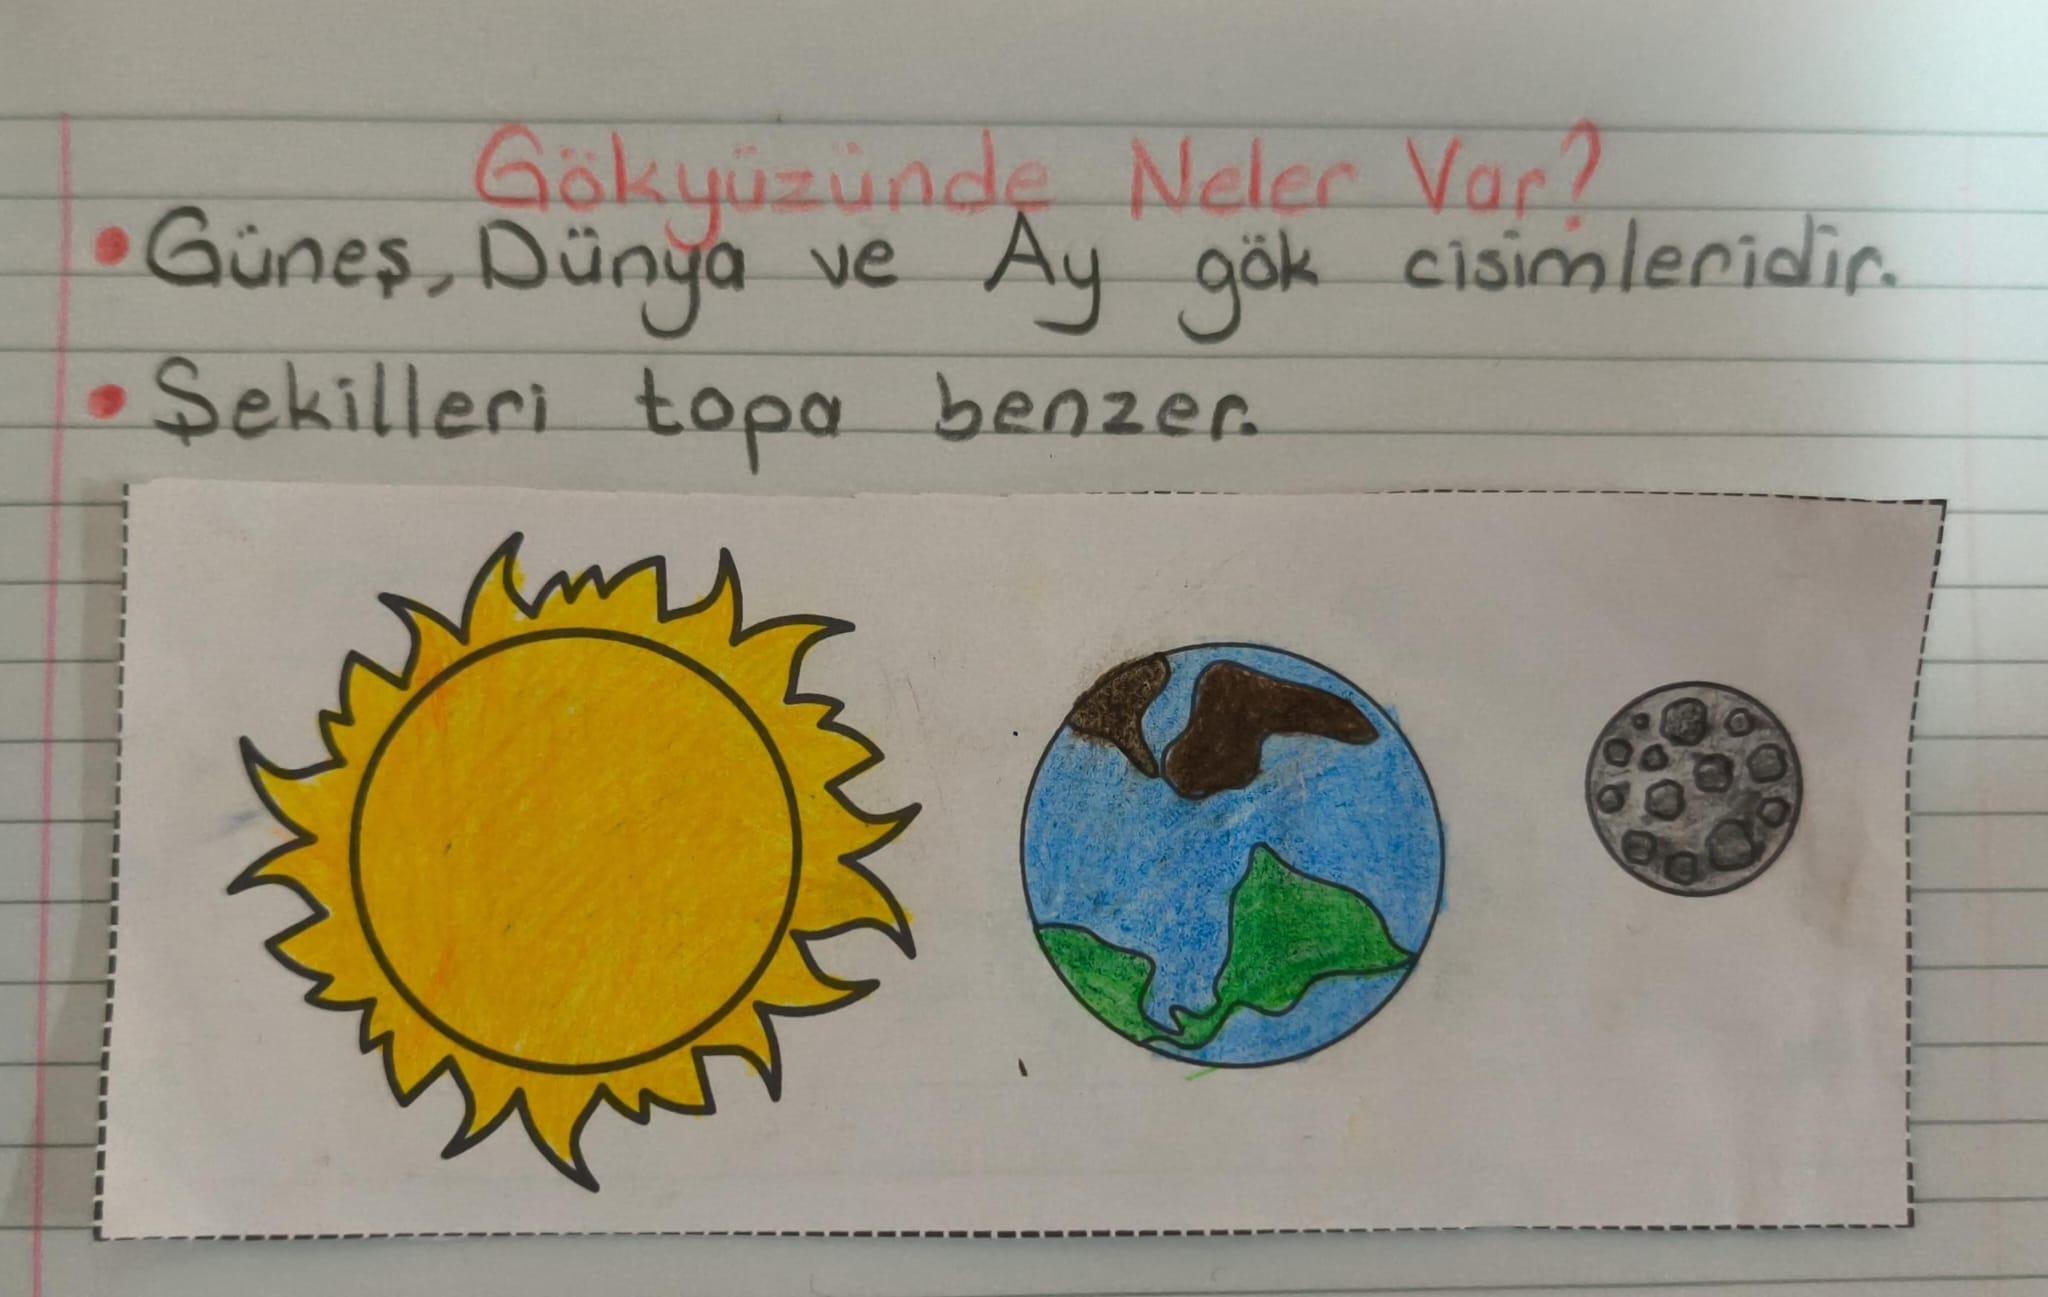 Gökyüzünde Neler Var?
• Güneş, Dünya ve Ay gök cisimleridir.
• Şekilleri topa benzer.